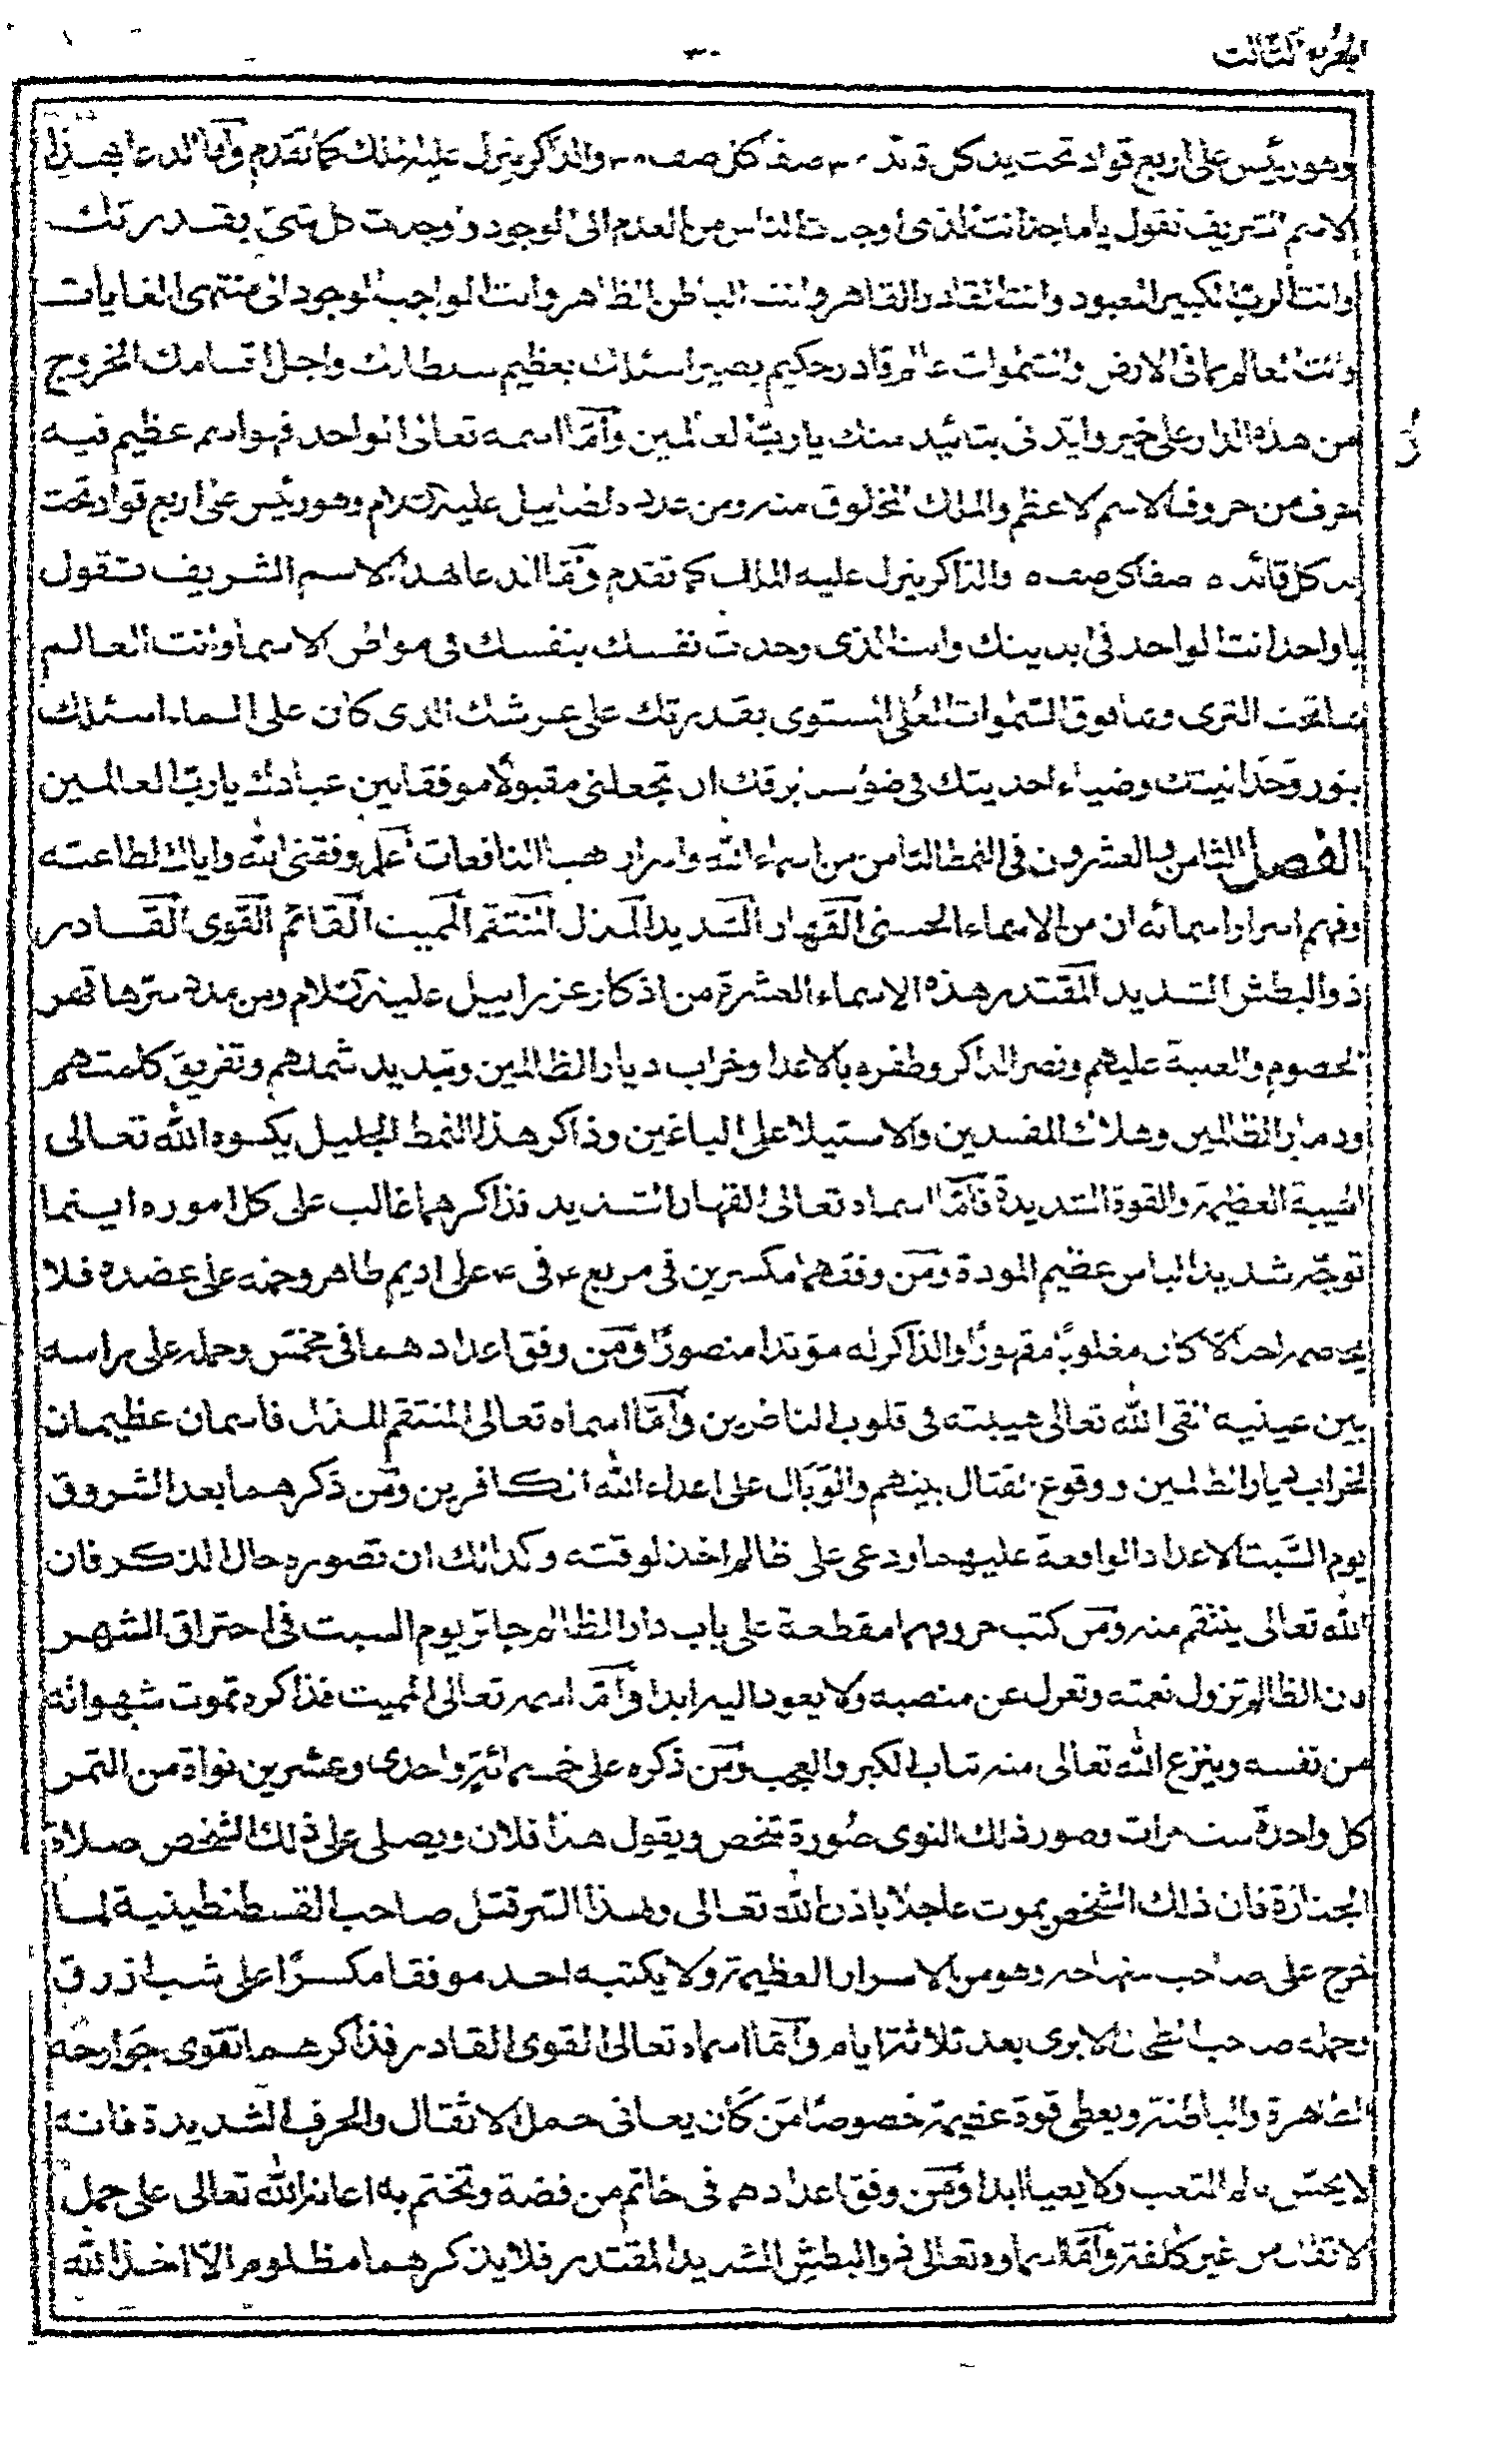 الجزء الثالث
٣٠
وهو رئيس على اربع قواد تحت يد كل قائد ٣٠ صف كل صف ٣٠ والذاكر ينزل عليه الملك كما تقدم وأما الدعا بهذا
الاسم الشريف تقول يا ماجد انت الذى اوجدت الناس من العدم الى الوجود واوجدت كل شئ بقدرتك
وانت الرب الكبير المعبود وانت القادر القاهر وانت الباطن الظاهر وانت الواجب الوجود الى منتهى الغايات
وانت العالم بما فى الارض والسموات عالم قادر حكيم بصير اسئلك بعظيم سلطانك واجل اقسامك الخروج
من هذه الدار على خير وايدنى بتائيد منك يا رب العالمين وأما اسمه تعالى الواحد فهو اسم عظيم فيه
حرف من حروف الاسم الاعظم والملك المخلوق منه ومن عدده عليه السلام وهو رئيس على اربع قواد تحت
يد كل قائد ٥ صفا كل صف ٥ والذاكر ينزل عليه الملك كما تقدم وأما الدعا هذا الاسم الشريف تقول
يا واحد انت الواحد فى ابديتك وانت الذى وحدت نفسك بنفسك فى مواطن الاسما وانت العالم
بما تحت الثرى وبما فوق السموات العلى المستوى بقدرتك على عرشك الذى كان على الماء اسئلك
بنور وحدانيتك وضياء احديتك فى برقك ان تجعلنى مقبولا موفقا بين عبادك يا رب العالمين
الفصل الثامن والعشرون فى النمط الثامن من اسماء الله واسرارهب النافعات أعلم وفقنى الله واياك لطاعته
وفهم اسرار اسمائه ان من الاسماء الحسنى القهار الشديد المذل المنتقم المميت القائم القوى القادر
ذو البطش الشديد المقتدر هذه الاسماء العشرة من اذكار عزراييل عليه السلام ومن مدة سرها قهر
الخصوم والغلبة عليهم ونصر الذاكر وظفره بالاعدا وخراب ديار الظالمين وتبديد شملهم وتفريق كلمتهم
ودمار الظالمين وهلاك المفسدين والاستيلا على الباغين وذاكر هذا النمط الجليل يكسوه الله تعالى
الهيبة العظيمة والقوة الشديدة فأما اسماه تعالى القهار الشديد فذاكرهما غالب على كل اموره اينما
توجه شديد الباس عظيم المودة ومن وفقهما مكسرين فى مربع ٤ فى ٤ على اديم طاهر وحمله على عضده فلا
يخاصمه احد الا كان مغلوبا مقهورا والذاكر له مؤيدا منصورا ومن وفق اعدادهما فى مخمس وحمله على راسه
بين عينيه القى الله تعالى هيبته فى قلوب الناظرين وأما اسماه تعالى المنتقم المذل فاسمان عظيمان
لخراب ديار الظالمين ووقوع القتال بينهم والوبال على اعداء الله الكافرين ومن ذكرهما بعد الشروق
يوم السبت الاعداد الواقعة عليهما ودعى على ظالم اخذ لوقته وكذلك ان تصوره حال الذكر فان
الله تعالى ينتقم منه ومن كتب حروفهما مقطعة على باب دار الظالم جائز يوم السبت فى احتراق الشهر
فان الظالم تزول نعمته وتعزل عن منصبه ولا يعود اليه ابدا وأما اسمه تعالى المميت فذاكره تموت شهواته
من نفسه وينزع الله تعالى منه ثياب الكبر والعجب ومن ذكره على خمسمائة واحدى وعشرين نواة من التمر
كل واحدة ست مرات وصور ذلك النوى صورة شخص ويقول هذا فلان ويصلى على ذلك الشخص صلاة
الجنازة فان ذلك الشخص يموت عاجلا باذن الله تعالى وبهذا السر قتل صاحب القسطنطينية لما
خرج على صاحب وهو من الاسرار العظيمة ولا يكتبه احد موفقا مكسرا على شب ازرق
وحمله صاحب الا برى بعد ثلاثة ايام وأما اسماه تعالى القوى القادر فذاكرهما تقوى جوارحه
الظاهرة والباطنة ويعطى قوة عظيمة خصوصا من كان يعانى حمل الاثقال والحرف الشديدة فانه
لا يحس بالم التعب ولا يعيا ابدا ومن وفق اعدادهم فى خاتم من فضة وتختم به اعانه الله تعالى على حمل
الاثقال من غير كلفة وأما اسماوه تعالى ذو البطش الشديد المقتدر فلا يذكرهما مظلوم الا اخذ الله